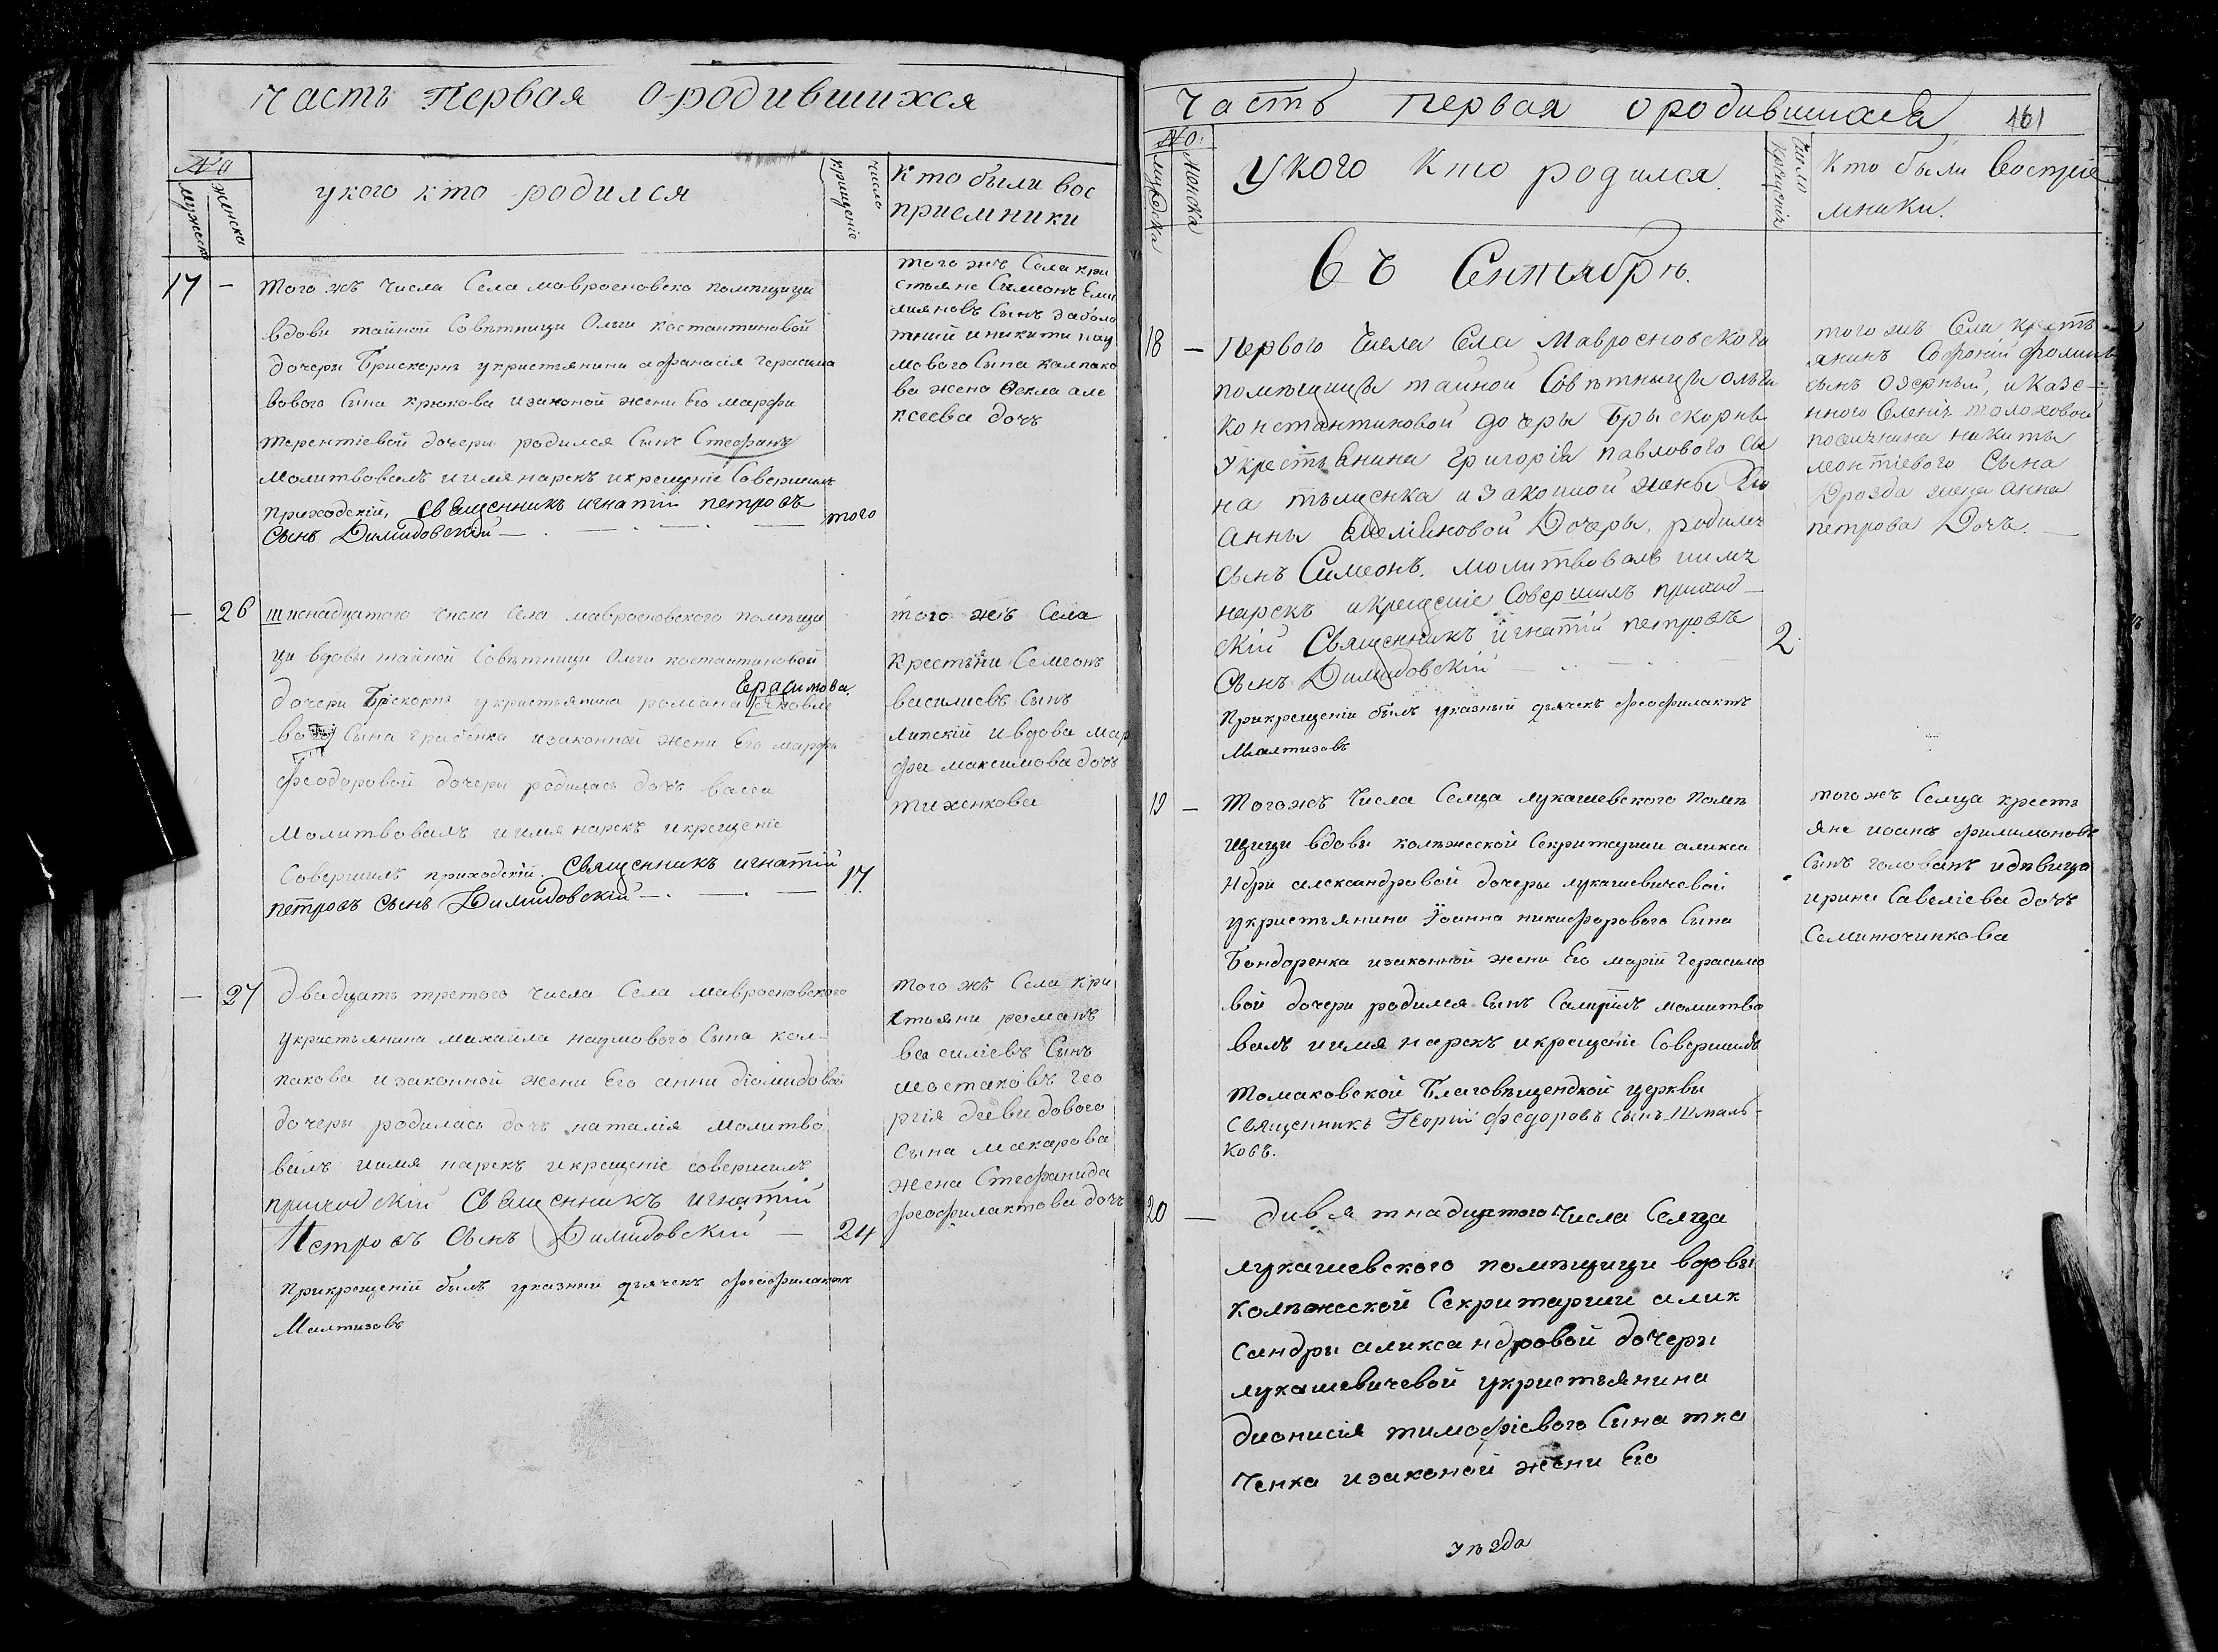 Часть Первая о родившихся
№
мужеска
женска
укого кто родился
число
крищеніе
кто были вос
приемники
17 —
Того жъ числа Села мавросновско помѣщици
вдови тайной Совѣтници Олги костантиновой
дочери Брискорнъ укристьянина афанасія Герасимо
вового Сина крюкова изаконой жени Его марфи
терентіевой дочери родился Синъ Стефанъ
молитвовалъ иимя нарекъ икрещуніе Совершилъ
приходскій, священникъ игнатій петровъ
сынъ Димидовскій —
того
того жъ Села кри
стьяне Симеонъ Еми
лияновъ Сынъ заболо
тний иникити нау
мового Сина калпако
ва жена Ѳекла але
ксеева дочъ
— 26
шиснадцатого числа села мавросновского помѣщи
ци вдовы тайной Совѣтници Олги костантиновой
дочери Брискорнъ укристьянина романа яковле
Герасимова
вого Сина грабенка изаконной жени Его марфи
феодоровой дочери родилась дочъ васса
молитвовалъ иимя нарекъ икрещеніе
Совершилъ приходскій. Священникъ игнатій
петровъ сынъ Димидовскій —
17
того жъ Села
крестьни Семеонъ
василиевъ Синъ
липскій ивдова мар
фа максимова дочъ
тихенкова
— 27
двадцать третого числа Села мавросновского
укристьянина михаила наумового Сина кал-
пакова изаконной жени Его анни діомидовой
дочеры родилась дочъ наталія молитво
валъ иимя нарекъ икрещеніе совершилъ
приходскій Священникъ игнатій
Петровъ Сынъ Димидовскій —
24
прикрещеній былъ указний дьячекъ феофилактъ
Малтизовъ
того жъ Села кри
стьяни романъ
василіевъ Синъ
мостаковъ гео
ргія давидового
сина макарова
жена Стефанида
феофилактова дочъ
Часть первая о родившихся
161
№
мужеска
женска
Укого Кто родился.
Число
крещенія
Кто были Воспріе
мники.
Въ Сентябрѣ.
18 —
Первого Числа Села Мавросновского
помѣщицы тайной Совѣтницы ольги
константиновой дочеры Брыскорнъ
Укрестьянина григорія павлового Сы
на тымченка изаконной жены Его
анны Емеліяновой Дочеры, родился
сынъ Симеонъ. молитвовалъ иимя
нарекъ икрещеніе Совершилъ приход-
скій Священникъ игнатій петровъ
Сынъ Димидовскій
2
Прикрещеніи былъ указный дьячекъ феофилактъ
Малтизовъ
того жъ Села кресть
янинъ Софоній фоминъ
сынъ Озерный, и Казе-
нного Селенія толоховой
никиты
леонтіевого Сына
Дрозда жена Анна
петрова Дочъ.
19 —
Тогожъ Числа Селца лукашевского помѣ
щици вдовы колѣжской Секритарши алекса
ндри александровой дочеры лукашевичевой
укристьянина Іоанна никифорового Сина
Бондоренка изаконной жени Его марій Герасимо
вой дочери родился Синъ молитво
валъ иимя нарекъ икрещеніе Совершилъ
томаковской Благовѣщенской церквы
священникъ Георгій федоровъ сынъ Шпаль-
ковъ.
того жъ Селца кресть
яне иоанъ филимоновъ
Синъ голованъ идѣвица
ирина Савеліева дочъ
20 —
дивятнадцятого Числа Селца
лукашевского помѣщици вдовы
колѣжской Секритарши алик
сандры аликсандровой дочеры
лукашевичевой укристьянина
дионисія тимофіевого Сина тка
ченка изаконой жени Его
уѣзда